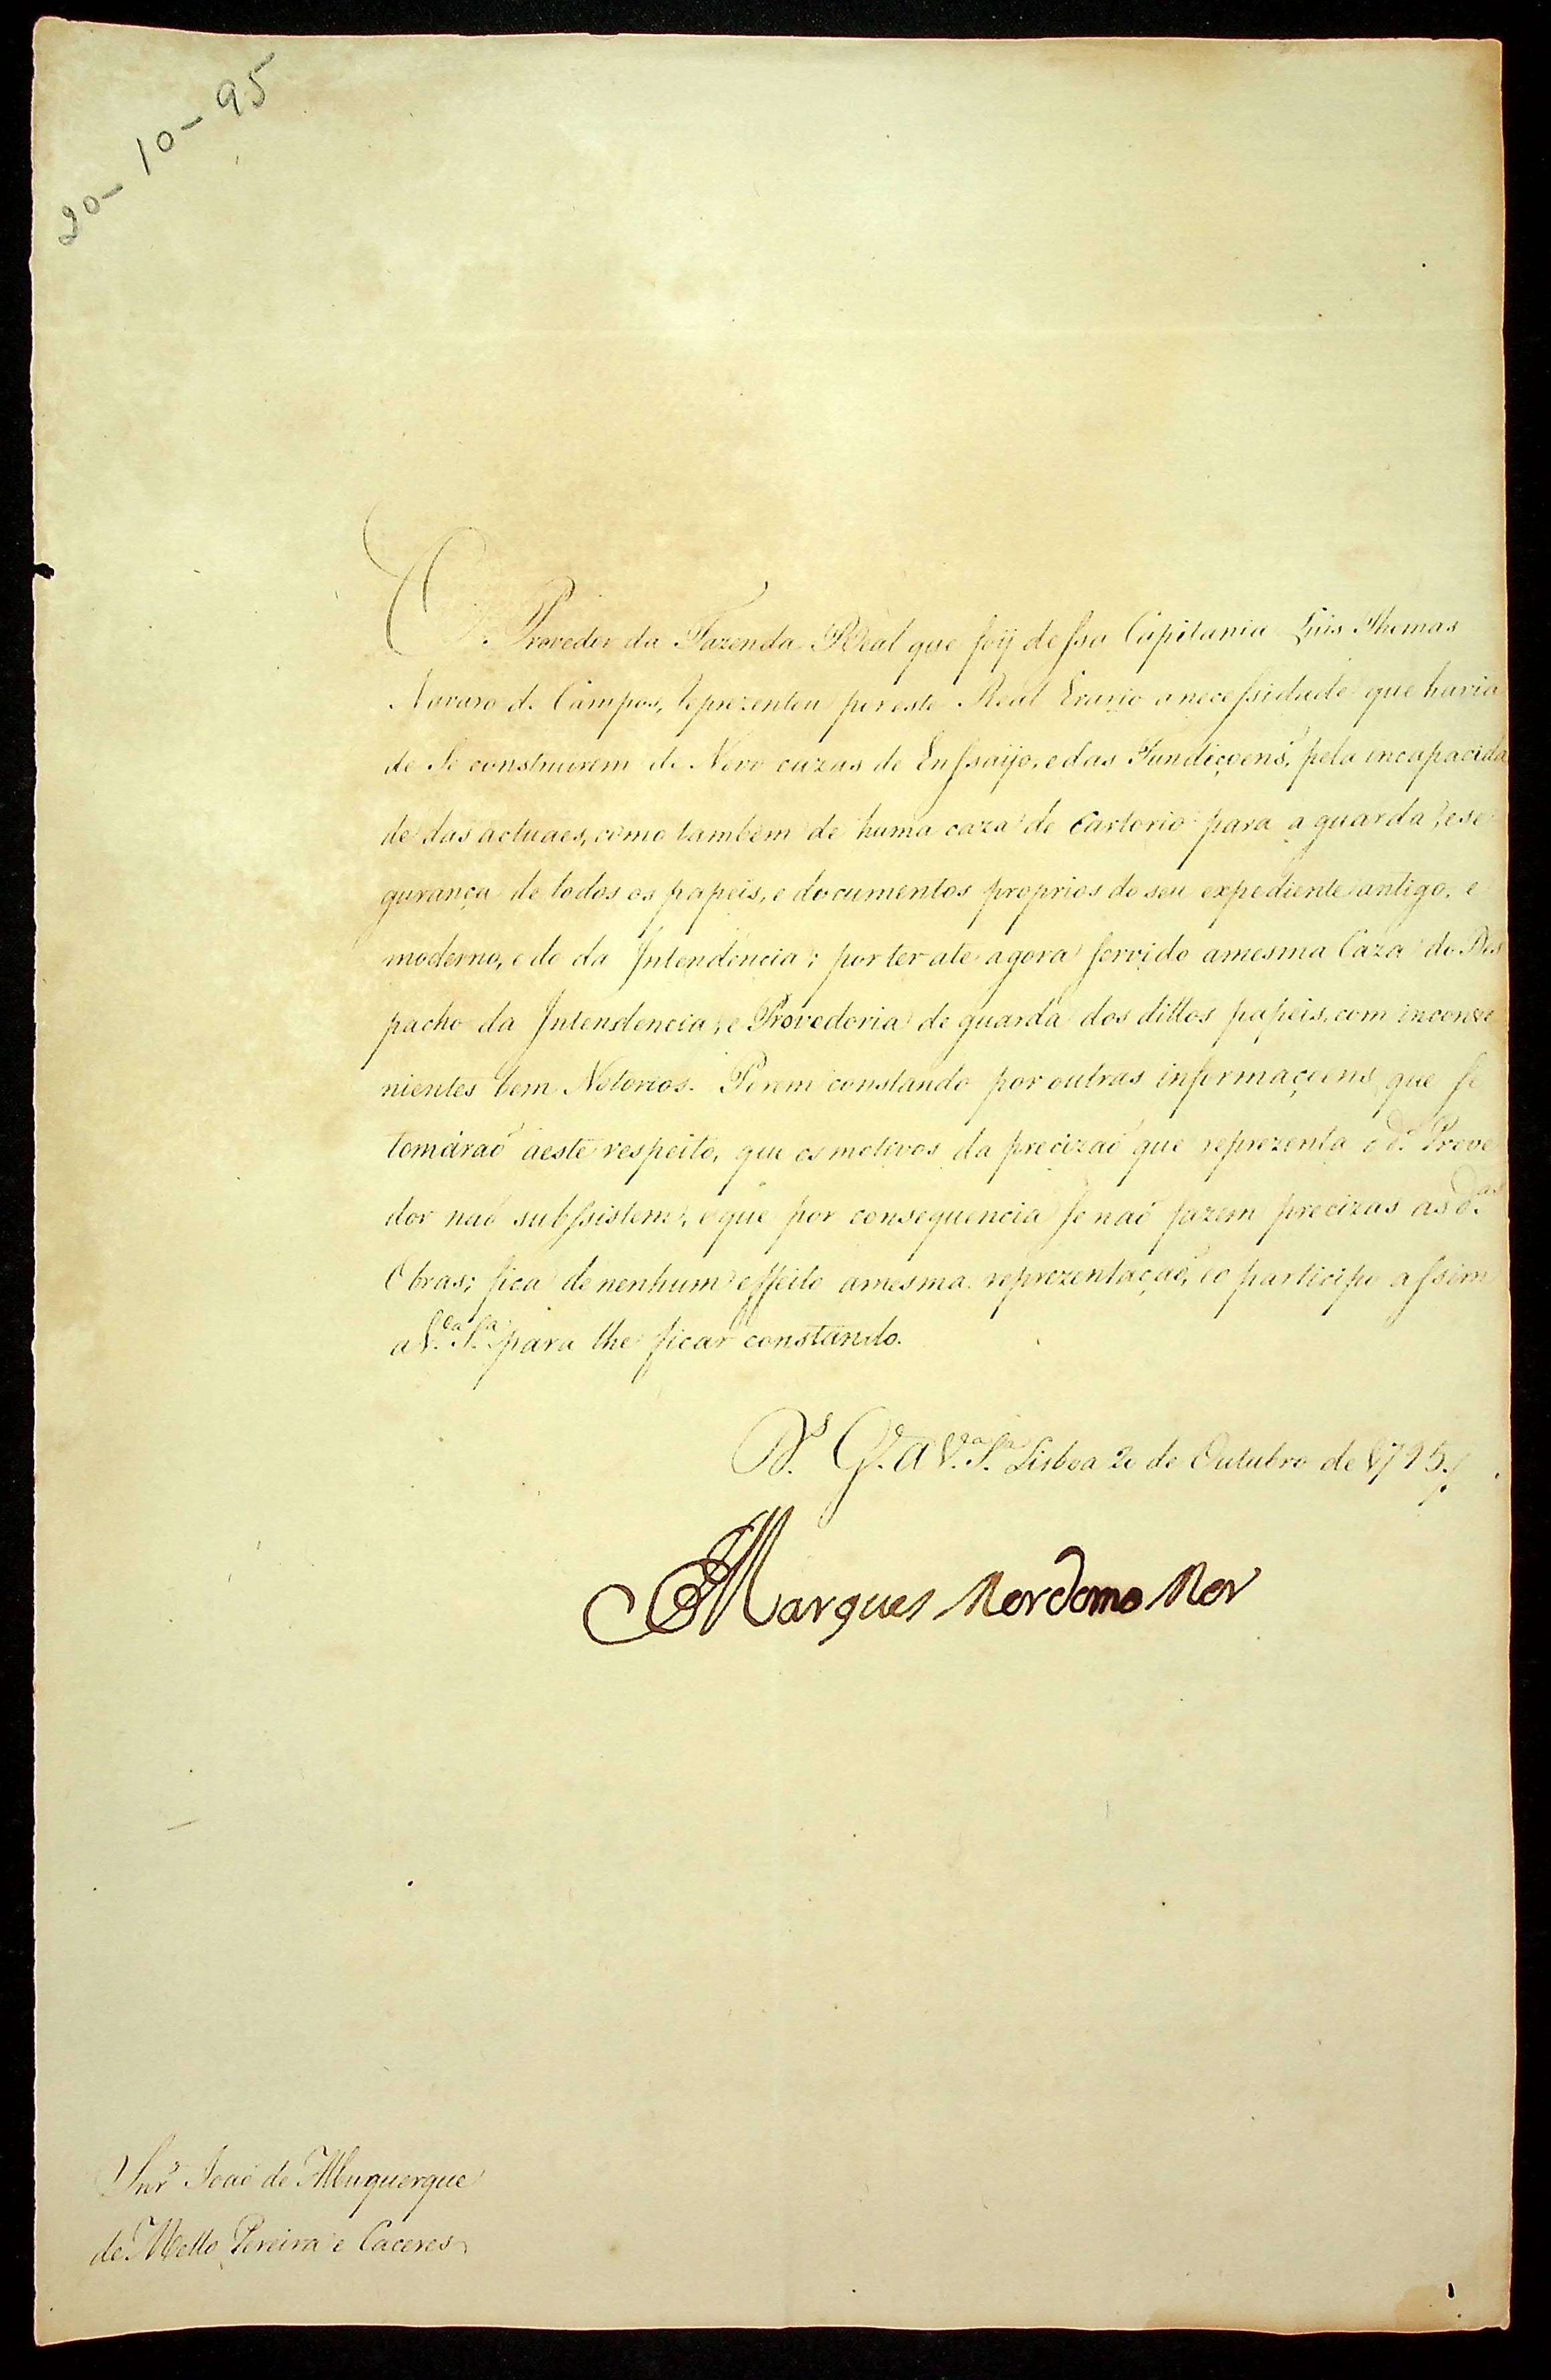 20-10-95
O Provedor da Fazenda Real que foÿ dessa Capitania Luis Thomas
Navarro de Campos, reprezentou por este Real Erario a necessidade que havia
de se construirem de Novo cazas de Enssaÿo, e das Fundiçoens, pela incapacida
de das actuaes, como tambem de huma caza de Cartorio para a guarda, e se
gurança de todos os papeis, e documentos proprios do seu expediente antigo, e
moderno, e do da Intendencia; por ter ate agora servido a mesma Caza do Des
pacho da Intendencia, e Provedoria de guarda dos dittos papeis, com inconve
nientes bem Notorios. Porem constando por outras informaçoens, que se
tomáraõ a este respeito, que os motivos da precizaõ que reprezenta o d.º Prove
dor naõ subssistem, e que por consequencia se naõ fazem precizas as d.as
Obras; fica de nenhum effeito a mesma reprezentaçaõ, e o participo assim
a V.a S.a para lhe ficar constando.
D.s G.e a V.a S.a Lisboa 20 de Outubro de 1795.
Marques Mordomo Mor
Snr. Joaõ de Albuquerque
de Mello Pereira e Caceres